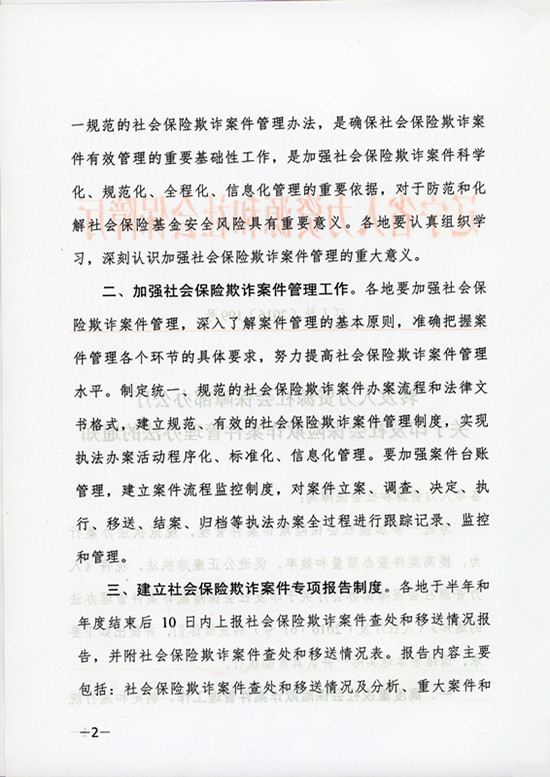 一规范的社会保险欺诈案件管理办法，是确保社会保险欺诈案
件有效管理的重要基础性工作，是加强社会保险欺诈案件科学
化、规范化、全程化、信息化管理的重要依据，对于防范和化
解社会保险基金安全风险具有重要意义。各地要认真组织学
习，深刻认识加强社会保险欺诈案件管理的重大意义。
二、加强社会保险欺诈案件管理工作。各地要加强社会保
险欺诈案件管理，深入了解案件管理的基本原则，准确把握案
件管理各个环节的具体要求，努力提高社会保险欺诈案件管理
水平。制定统一、规范的社会保险欺诈案件办案流程和法律文
书格式，建立规范、有效的社会保险欺诈案件管理制度，实现
执法办案活动程序化、标准化、信息化管理。要加强案件台账
管理，建立案件流程监控制度，对案件立案、调查、决定、执
行、移送、结案、归档等执法办案全过程进行跟踪记录、监控
和管理。
三、建立社会保险欺诈案件专项报告制度。各地于半年和
年度结束后 10 日内上报社会保险欺诈案件查处和移送情况报
告，并附社会保险欺诈案件查处和移送情况表。报告内容主要
包括：社会保险欺诈案件查处和移送情况及分析、重大案件和
—2—